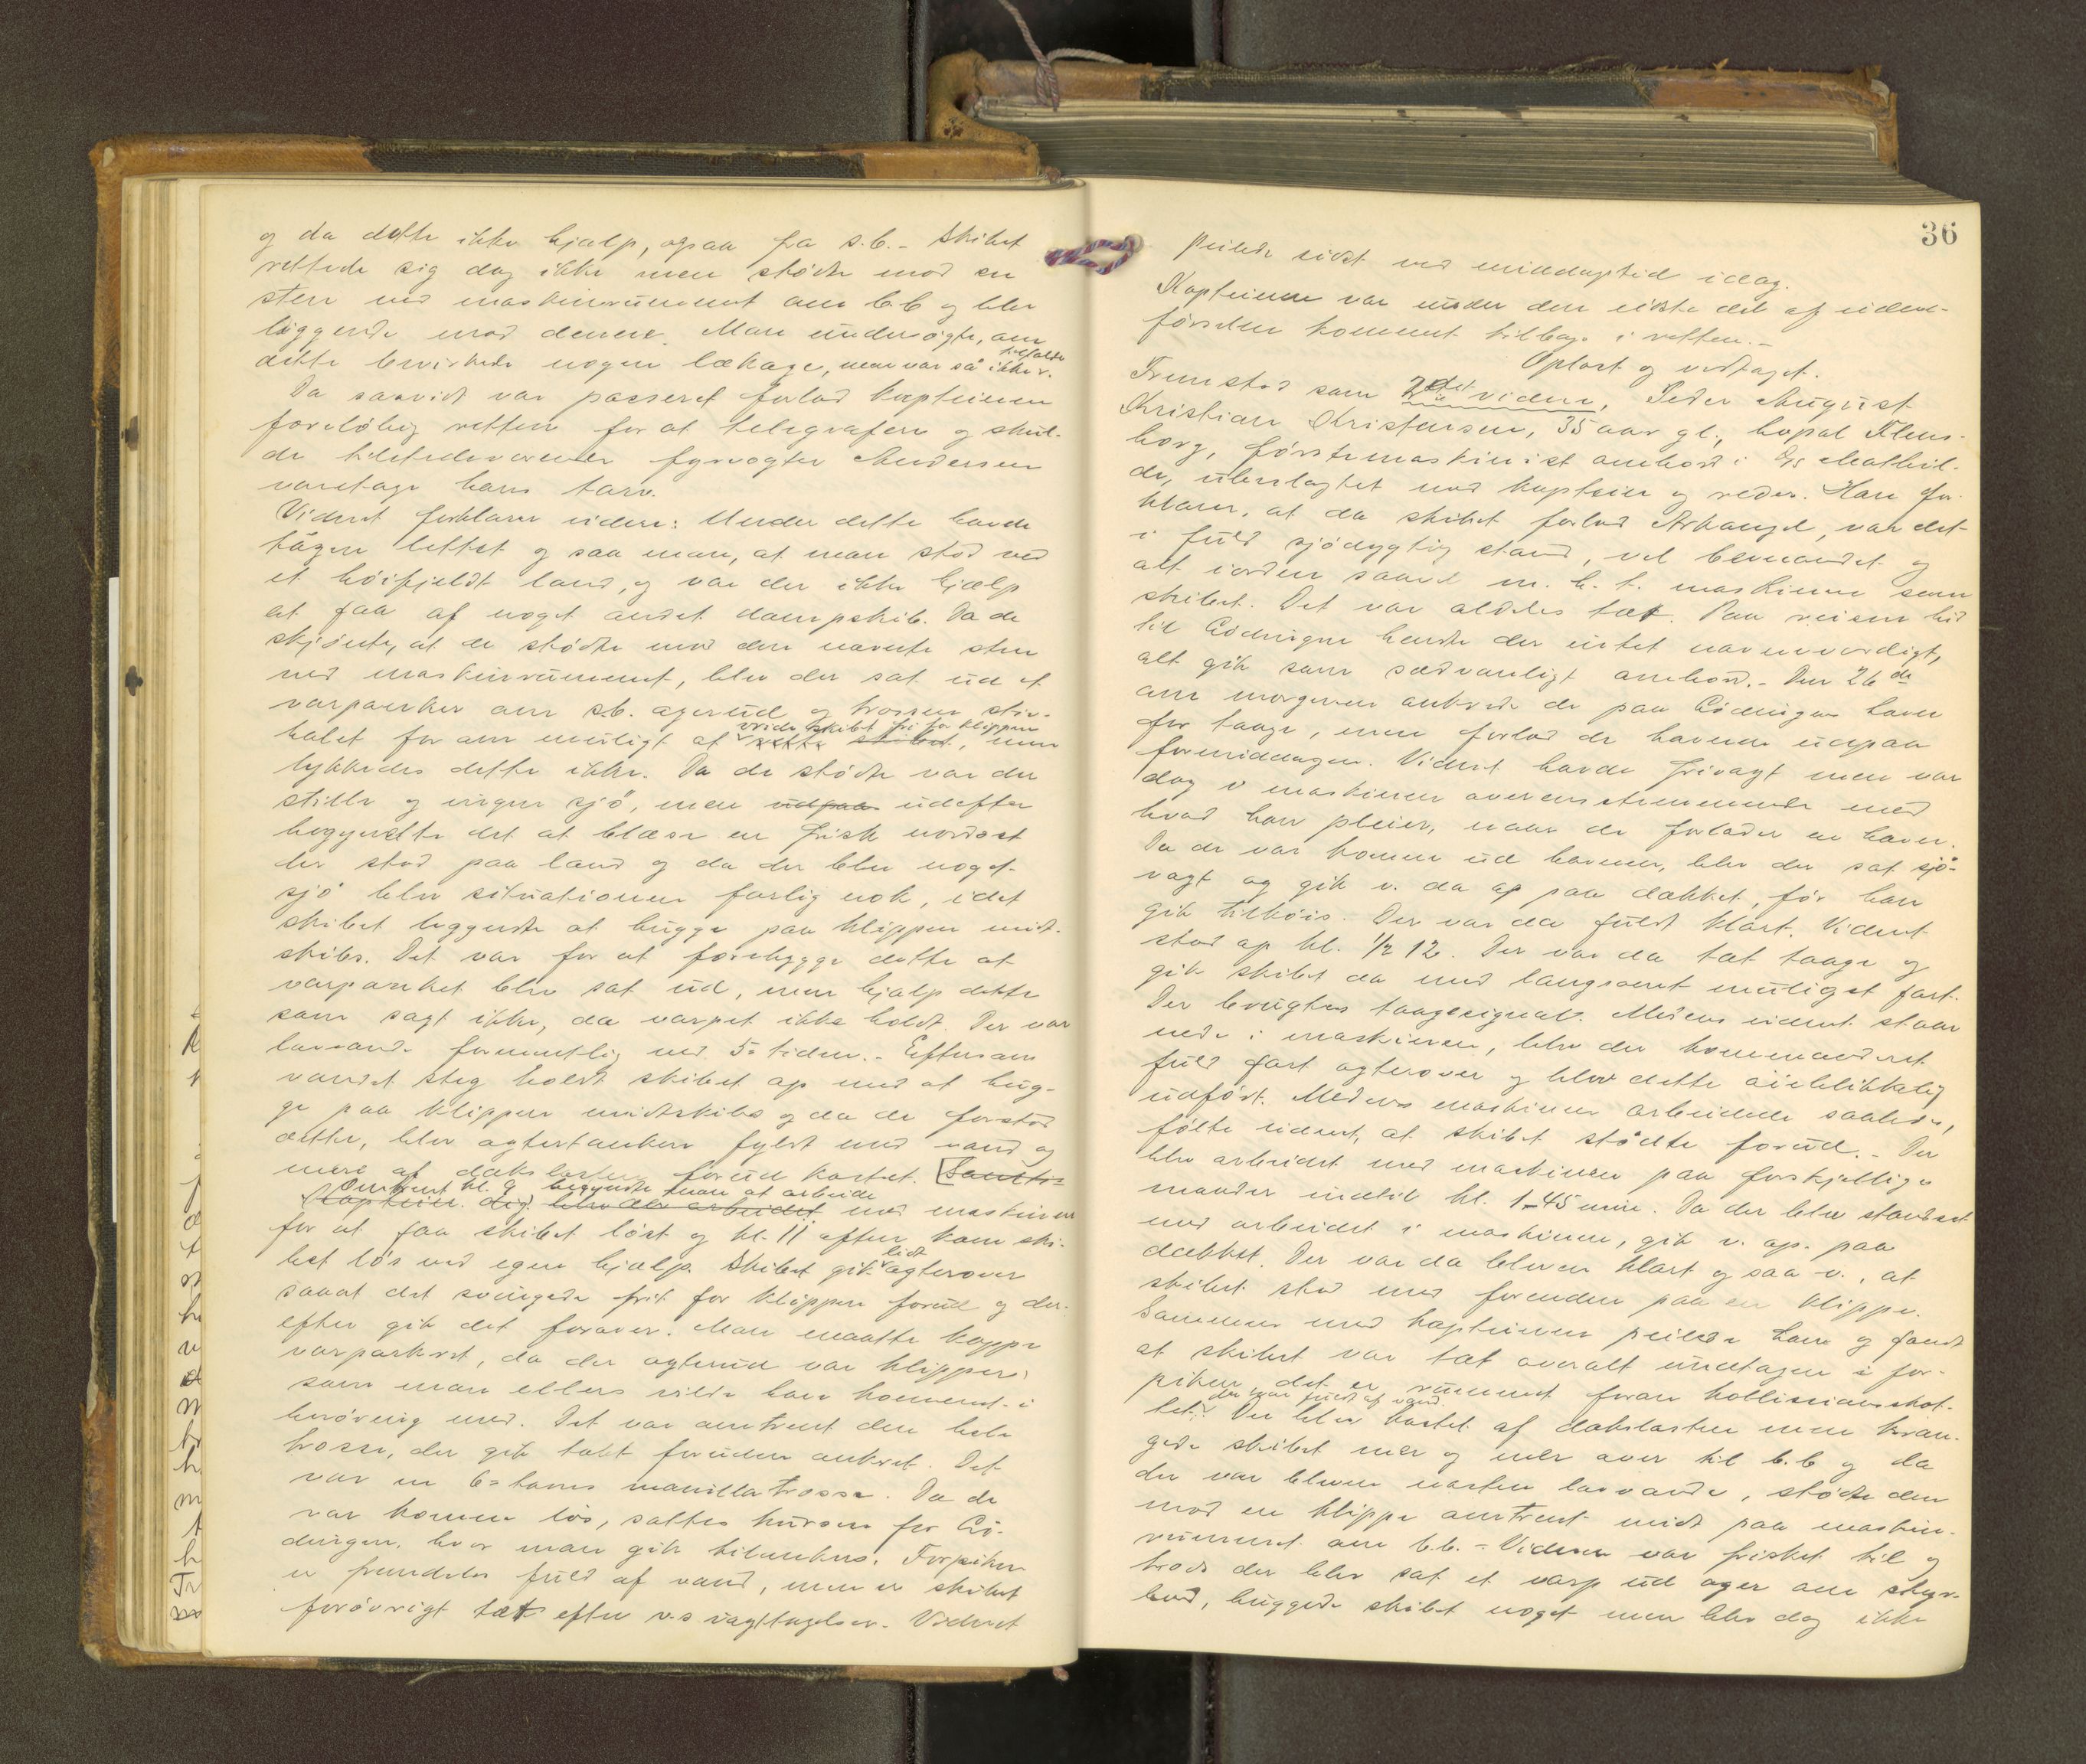 og da dette ikke hjalp, ogsaa fra s.b. - Skibet
rettede sig dog ikke men stødte mod en
sten ved maskinrummet om b.b og blev
liggende mod denne. Man undersøgte, om
dette bevirkede nogen lækage, men var så ikke tilfælde
Da saavidt var passeret forlod kapteinen
foreløbig retten for at telegrafere og skul-
de tilstedeværende fyrvogter Andersen
varetage hans tarv.
Vidnet forklarer videre: Under dette havde
tågen lettet og saa man, at man stod ved
et høifjeldt land, og var der ikke hjælp
at faa af noget andet dampskib. Da de
skjønte, at de stødte mod den nævnte sten
ved maskinrummet, blev der sat ud et
varpanker om s.b. agterud og trossen stiv-
halet for om muligt at vride skibet fri for klippen rette skibet, men
lykkedes dette ikke. Da de stødte var der
stille og ingen sjø, men udpaa udefter
begyndte det at blæse en frisk nordost
der stod paa land og da der blev noget
sjø blev situationen farlig nok, idet
skibet begyndte at hugge paa klippen midt-
skibs. Det var for at forebygge dette at
varpankret blev sat ud, men hjalp dette
som sagt ikke, da varpet ikke holdt. Der var
lavvande formentlig ved 5-tiden. - Eftersom
vandet steg holdt skibet op med at hug-
ge paa klippen midtskibs og da de forstod
dette, blev agtertanken fyldt med vand og
mere af dækslasten forud kastet.
Omtrent kl. 9 begyndte man at arbeide
kaptein. dig. blev der arbeidet med maskinen
for at faa skibet løst og kl. 11 efter kom ski-
bet løs ved egen hjælp. Skibet gik lidt agterover
saaat det svingede frit for klippen forud og der-
efter gik det forover. Man maatte kappe
varpankret, da der agterud var klipper,
som man ellers vilde have kommet i
berøvring med. Det var omtrent den hele
trosse, der gik tabt foruden ankret. Det
var en 6= toms manillatrosse. Da de
var kommen løs, sattes kursen for Lö-
dingen, hvor man gik tilankers. Forpiken
er fremdeles fuld af vand, men er skibet
forøvrigt tæt efter v-s iagttagelser. Vidnet
36
peilede sidst ved middagstid idag.
Kapteinen var under den sidste del af vidne-
førselen kommet tilbage i retten. -
Oplæst og vedtaget.
Fremstod som 2det vidne, Peder August
Kristian Kristensen, 35 aar gl., bopæl Flens-
borg, førstemaskinist ombord i D/s Mathil-
de, ubeslægtet med kaptein og reder. Han for-
klarer, at da skibet forlod Arkangel, var det
i fuld sjødygtig stand, vel bemandet og
alt iorden saavel m. h. t. maskinen som
skibet. Det var aldeles tæt. Paa reisen hid
til Lödingen hændte der intet nævneværdigt,
alt gik som sædvanligt ombord. - Den 26de
om morgenen ankrede de paa Lödingens havn
for taage, men forlod de havnen udpaa
formiddagen. Vidnet havde frivagt men var
dog v maskinen overensstemmende med
hvad han pleier, naar de forlader en havn.
Da de var kommen ud havnen, blev der sat sjø-
vagt og gik v. da op paa dækket, før han
gik tilkøis. Der var da fuldt klart. Vidnet
stod op kl. ½ 12. Der var da tæt taage og
gik skibet da med langsomst muligst fart.
Der brugtes taagesignal. Medens vidnet staar
nede i maskinen, blev der kommanderet
fuld fart agterover og blev dette øieblikkelig
udført. Medens maskinen arbeidede saaledes,
følte vidnet, at skibet stødte forud. - Der
blev arbeidet med maskinen paa forskjellige
maader indtil kl. 1-45 min. Da der blev standset
med arbeidet i maskinen, gik v. op. paa
dækket. Der var da bleven klart og saa v., at
skibet stod med forenden paa en klippe.
Sammen med kapteinen peilede han og fandt
at skibet var tæt overalt undtagen i for-
piken det er rummet foran kollisionsskot-
tet. der var fuldt af vand. Der blev kastet af dækslasten men kræn-
gede skibet mer og mer over til b.b og da
der var bleven næsten lavvande, stødte den
mod en klippe omtrent midt paa maskin-
rummet om b.b. - Vinden var frisket til og
trods der blev sat et varp ud ager om styr-
bord, huggede skibet noget men blev dog ikke